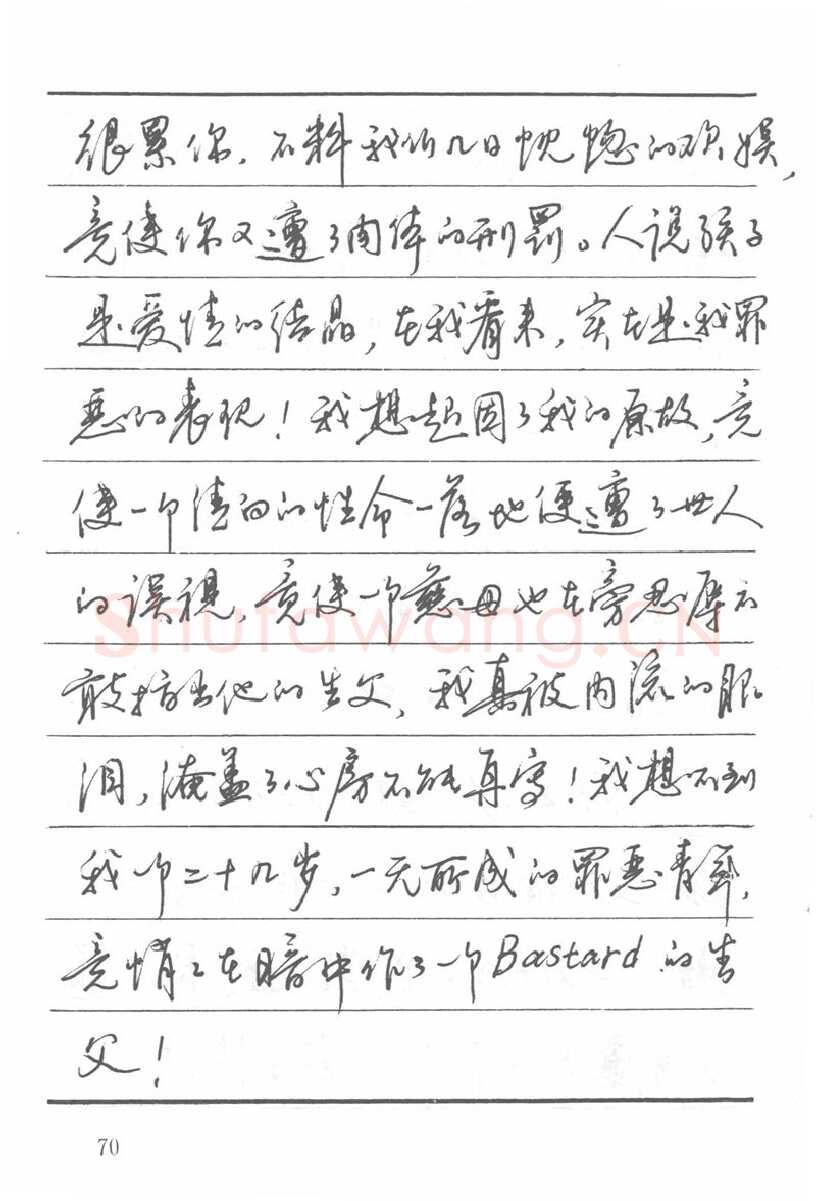 很累你，不料我们几日恍惚的欢娱，
竟使你又遭了肉体的刑罚。人说孩子
是爱情的结晶，在我看来，实在是我罪
恶的表现！我想起因了我的原故，竟
使一个清白的性命一落地便遭了世人
的误视，竟使一个慈母也在旁忍辱不
敢指出他的生父，我真被内流的眼
泪，淹盖了心房不能再写！我想不到
我个二十几岁，一无所成的罪恶青年，
竟悄々在暗中作了一个Bastard的生
父！
Shufawang.CN
70